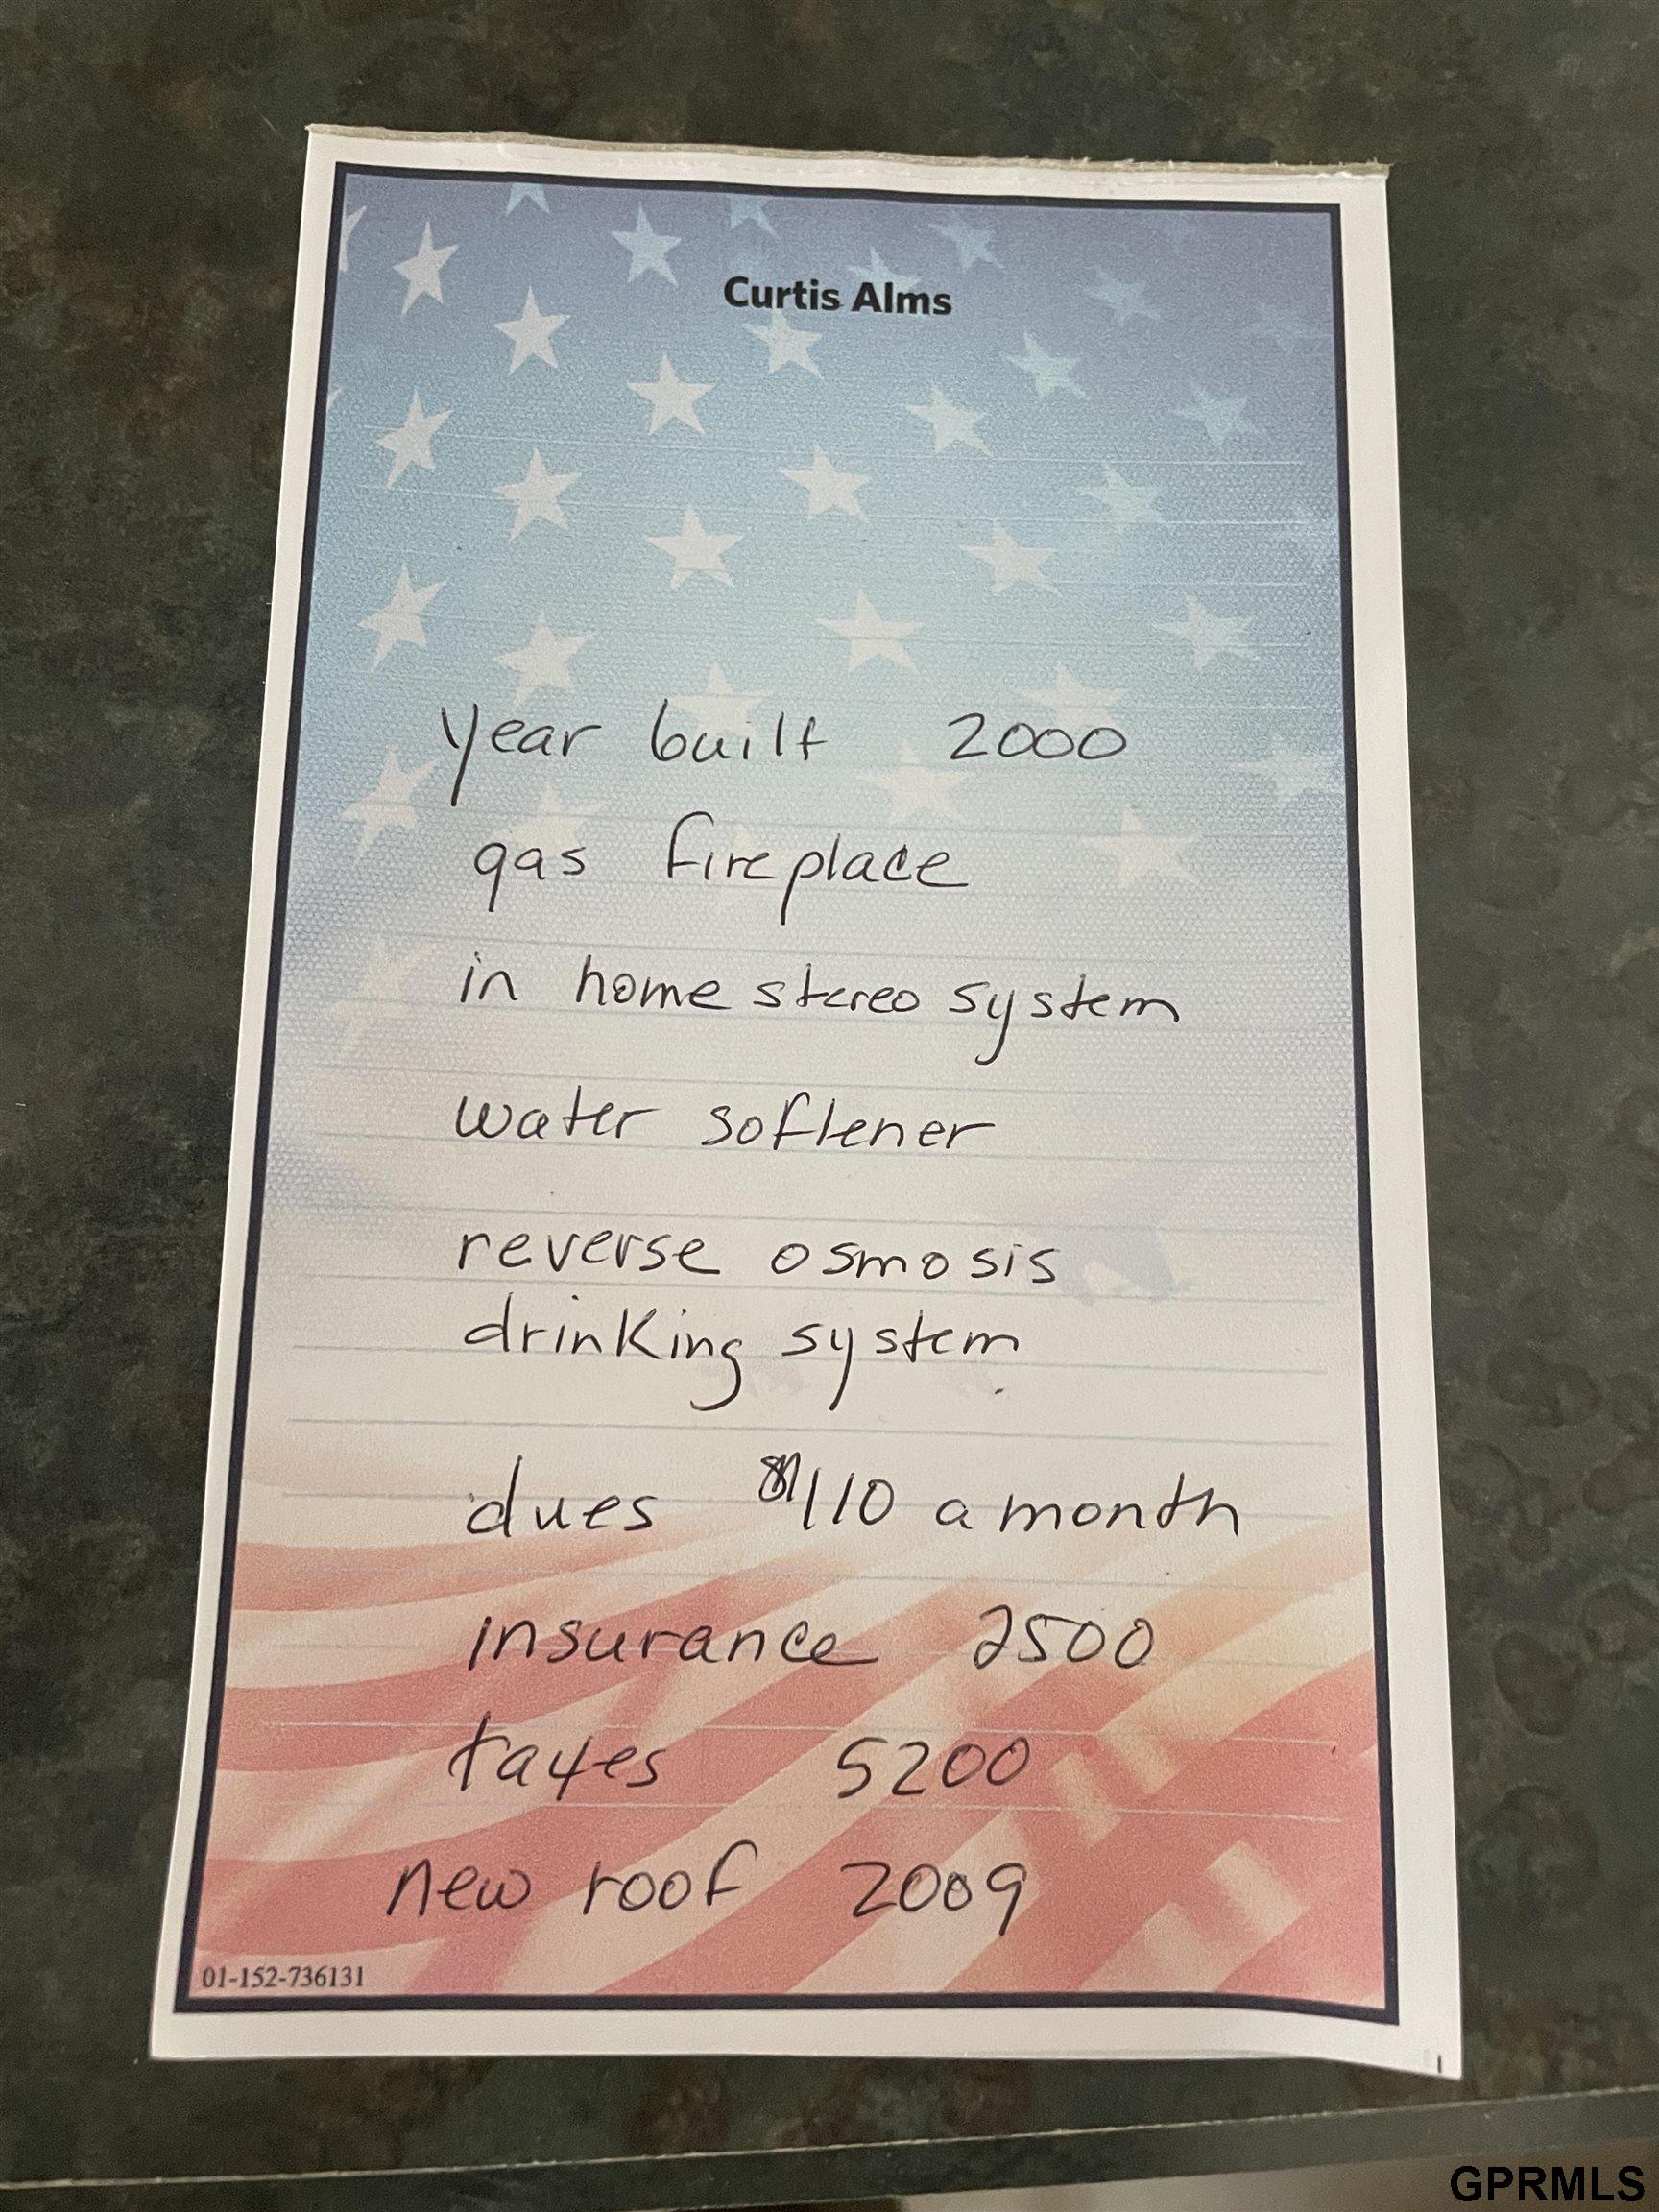 Curtis Alms
year built 2000
gas fireplace
in home stereo system
water softener
reverse osmosis
drinking system
dues $110 a month
insurance 2500
taxes 5200
new roof 2009
01-152-736131
GPRMLS